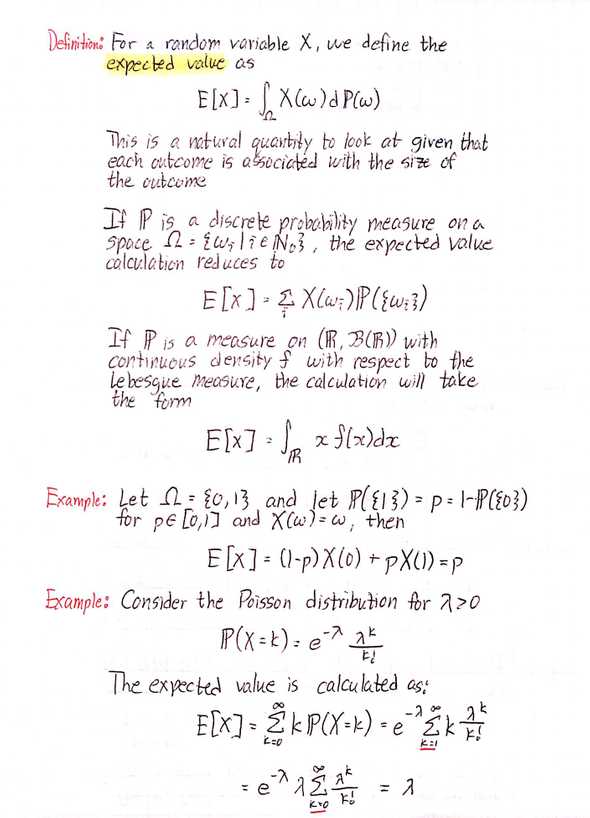 Definition: For a random variable X, we define the
expected value as
E[X] = ∫_Ω X(ω) d P(ω)
This is a natural quantity to look at given that
each outcome is associated with the size of
the outcome
If ℙ is a discrete probability measure on a
space Ω = {ω_i | i ∈ ℕ_0}, the expected value
calculation reduces to
E[X] = Σ_i X(ω_i) ℙ({ω_i})
If ℙ is a measure on (ℝ, B(ℝ)) with
continuous density f with respect to the
Lebesgue measure, the calculation will take
the form
E[X] = ∫_ℝ x f(x)dx
Example: Let Ω = {0,1} and let ℙ({1}) = p = 1-ℙ({0})
for p ∈ [0,1] and X(ω) = ω, then
E[X] = (1-p) X(0) + p X(1) = p
Example: Consider the Poisson distribution for λ>0
ℙ(X=k) = e^{-λ} λ^k / k!
The expected value is calculated as:
E[X] = Σ_{k=0}^∞ k ℙ(X=k) = e^{-λ} Σ_{k=1}^∞ k λ^k / k!
= e^{-λ} λ Σ_{k=0}^∞ λ^k / k! = λ